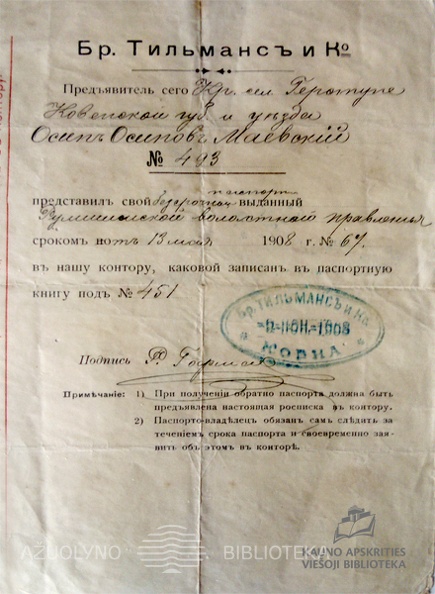 Бр. Тильмансъ и Ко
Предъявитель сего Кр. сел.
Ковенской губ. и уѣзда
Осипъ Осиповъ Маевскій
№ 493
паспортъ
представилъ свой безсрочный выданный
Румшишской волостной правленья
срокомъ по отъ 13 мая 1908 г. № 67.
въ нашу контору, каковой записанъ въ паспортную
книгу подъ № 451
БР. ТИЛЬМАНСЪ и Ко
-2 ІЮН. 1908
КОВНА
Подпись
Примѣчаніе: 1) При полученіи обратно паспорта должна быть
предъявлена настоящая росписка въ контору.
2) Паспорто-владѣлец обязан самъ слѣдить за
теченіемъ срока паспорта и своевременно зая-
вить объ этомъ въ конторѣ.
AŽUOLYNO BIBLIOTEKA
KAUNO APSKRITIES
VIEŠOJI BIBLIOTEKA